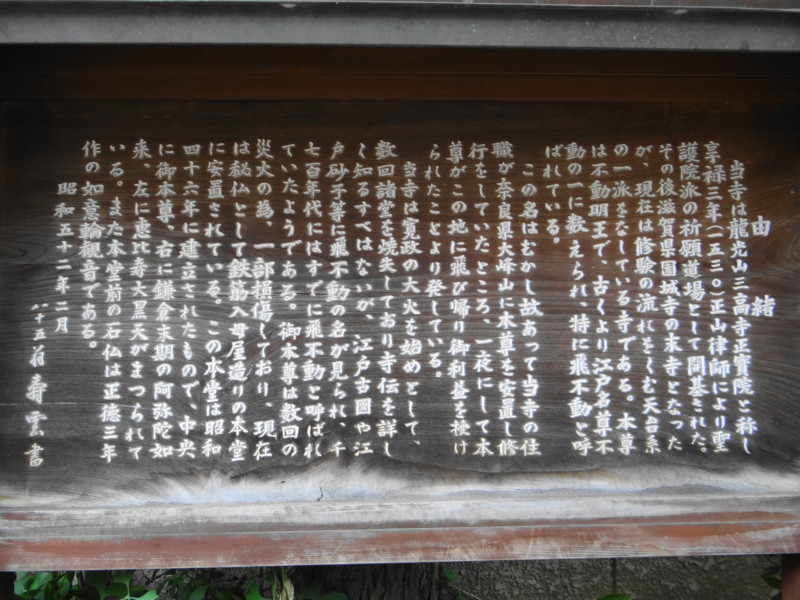 由緒
当寺は龍光山三高寺正寶院と称し
享禄三年(一五三〇)正山律師により聖
護院派の祈願道場として開基された。
その後滋賀県園城寺の末寺となった
が、現在は修験の流れをくむ天台系
の一派をなしている寺である。本尊
は不動明王で、古くより江戸名尊不
動の一に数えられ、特に飛不動と呼
ばれている。
この名はむかし故あって当寺の住
職が奈良県大峰山に本尊を安置し修
行をしていたところ、一夜にして本
尊がこの地に飛び帰り御利益を授け
られたことより発している。
当寺は寛政の大火を始めとして、
数回諸堂を焼失しており寺伝を詳し
く知るすべはないが、江戸古図や江
戸砂子等に飛不動の名が見られ、千
七百年代にはすでに飛不動と呼ばれ
ていたようである。御本尊は数回の
災火の為、一部損傷しており、現在
は秘仏として鉄筋入母屋造りの本堂
に安置されている。この本堂は昭和
四十六年に建立されたもので、中央
に御本尊、右に鎌倉末期の阿弥陀如
来、左に恵比寿大黒天がまつられて
いる。また本堂前の石仏は正徳三年
作の如意輪観音である。
昭和五十二年二月
八十五翁寿雲書